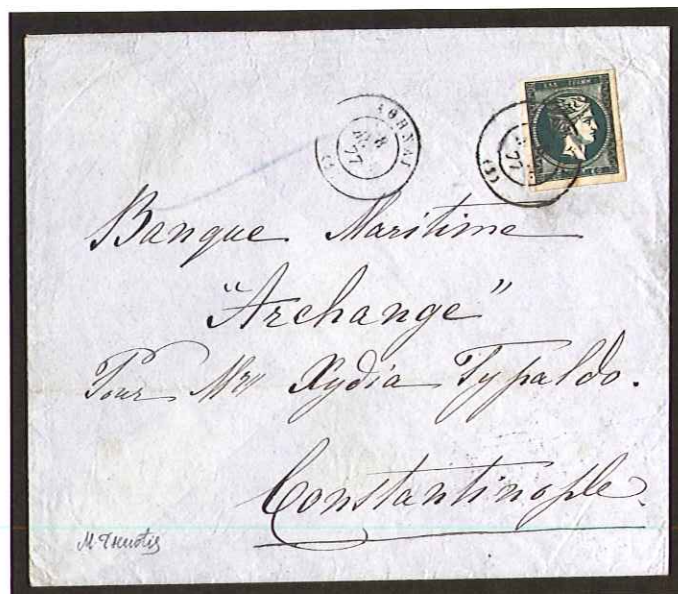 ΑΘΗΝΑΙ
8
77
77
Banque Maritime
"Archange"
Pour Mr Xydia Typaldo.
Constantinople.